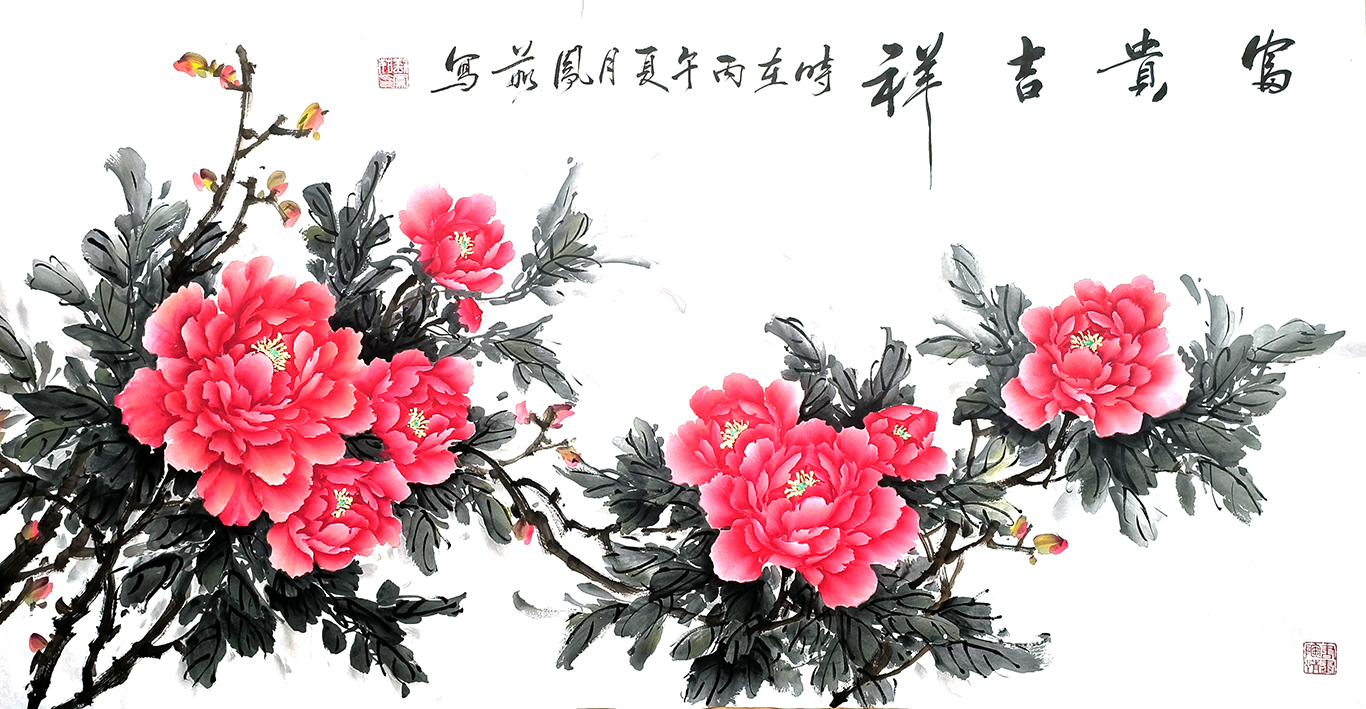 富貴吉祥
時在丙午夏月鳳茹寫